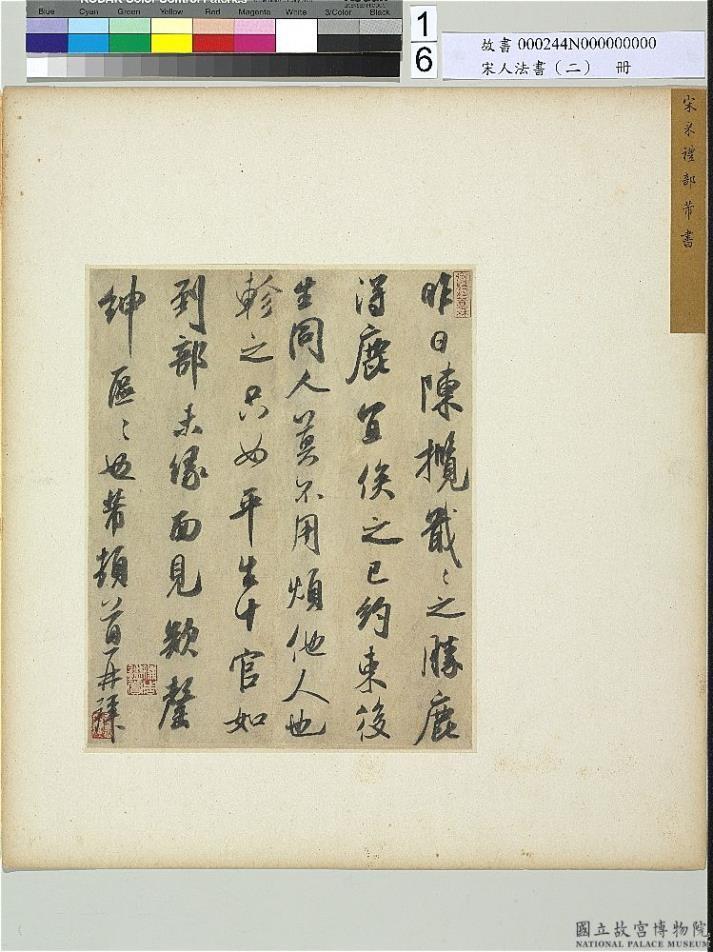 KODAK Color Control Patches
Blue Cyan Green Yellow Red Magenta White 3/Color Black
16
故書 000244N000000000
宋人法書（二） 冊
宋米禮部芾書
昨日陳攬戢戢之勝鹿
得鹿宜俟之已約束後
生同人莫不用煩他人也
軫之只如平生十官如
到部未緣面見欵罄
紳區區也芾頓首再拜
國立故宮博物院
NATIONAL PALACE MUSEUM